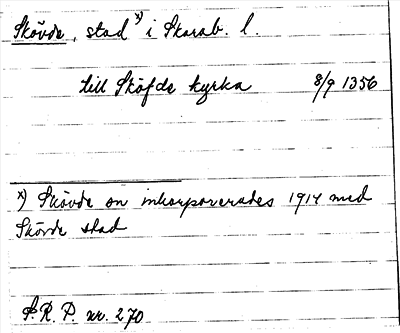 Skövde, stad x) i Skarab. l.
till Sköfde kyrka 8/9 1356
x) Skövde sn inkorporerades 1914 med
Skövde stad
S.R.P. nr. 270